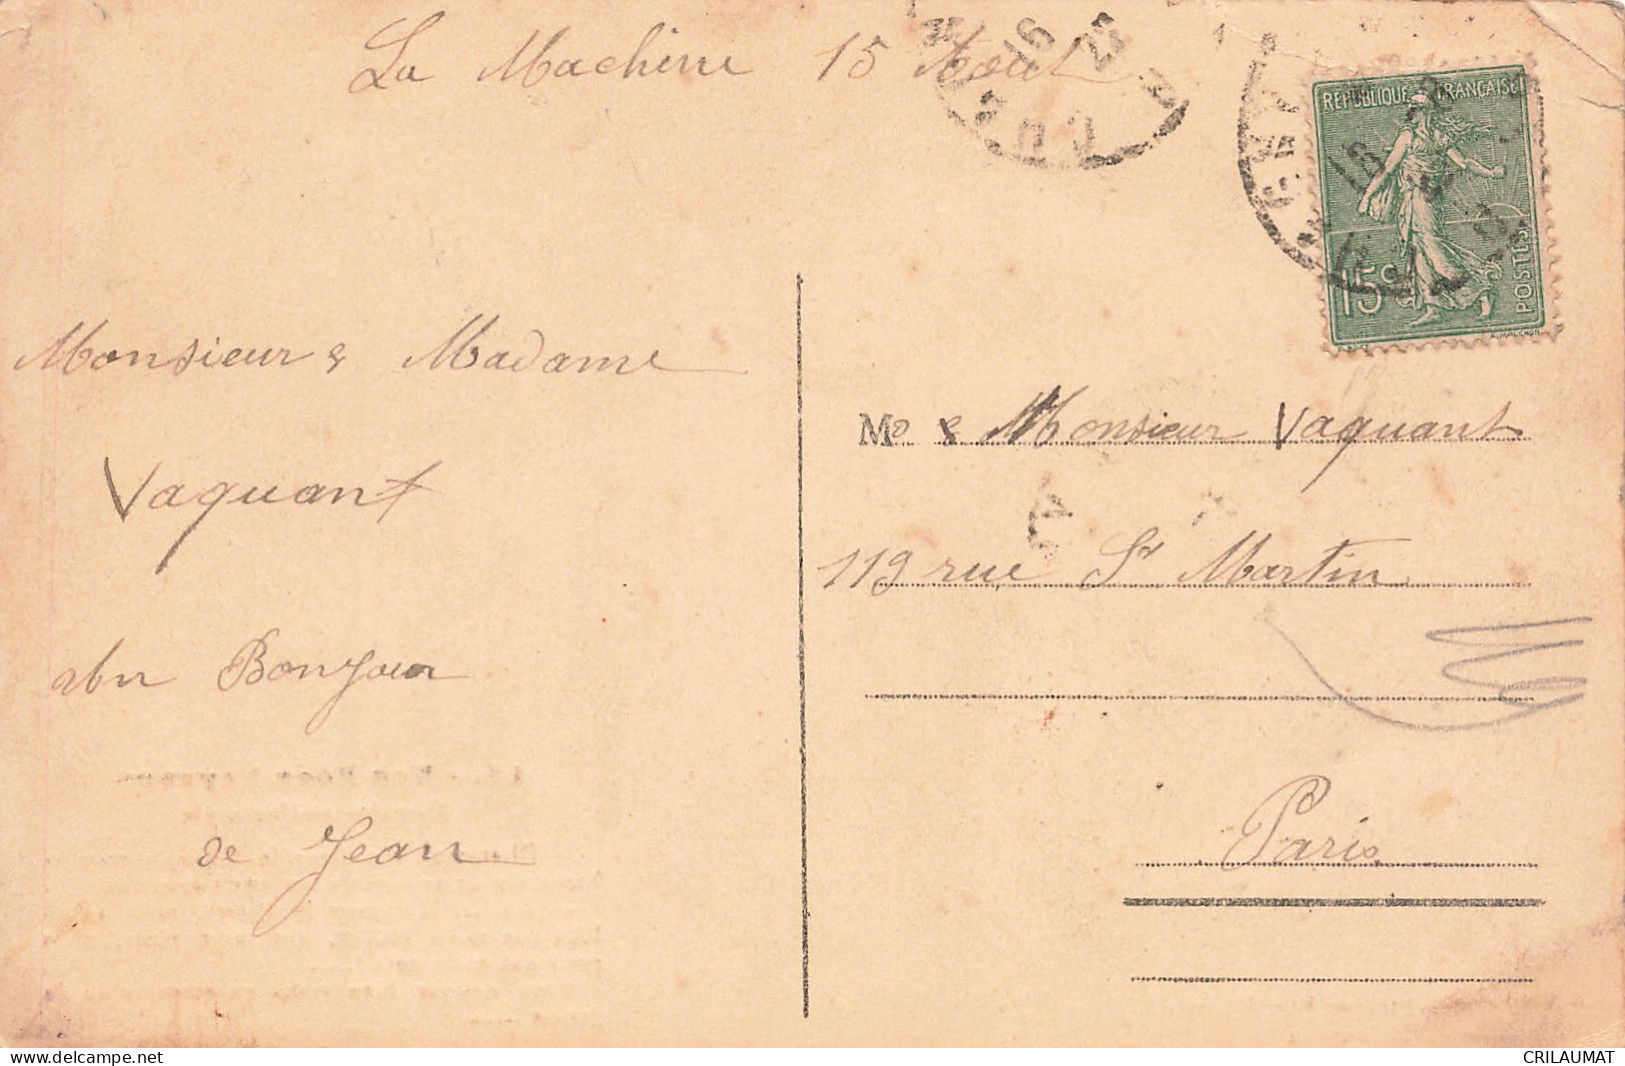 La Machine 15 Aout
16
22
RÉPUBLIQUE FRANÇAISE
15c
POSTES
Monsieur & Madame
Vaquant
un Bonjour
de Jean
M & Monsieur Vaquant
119 rue St Martin
Paris
www.delcampe.net
CRILAUMAT